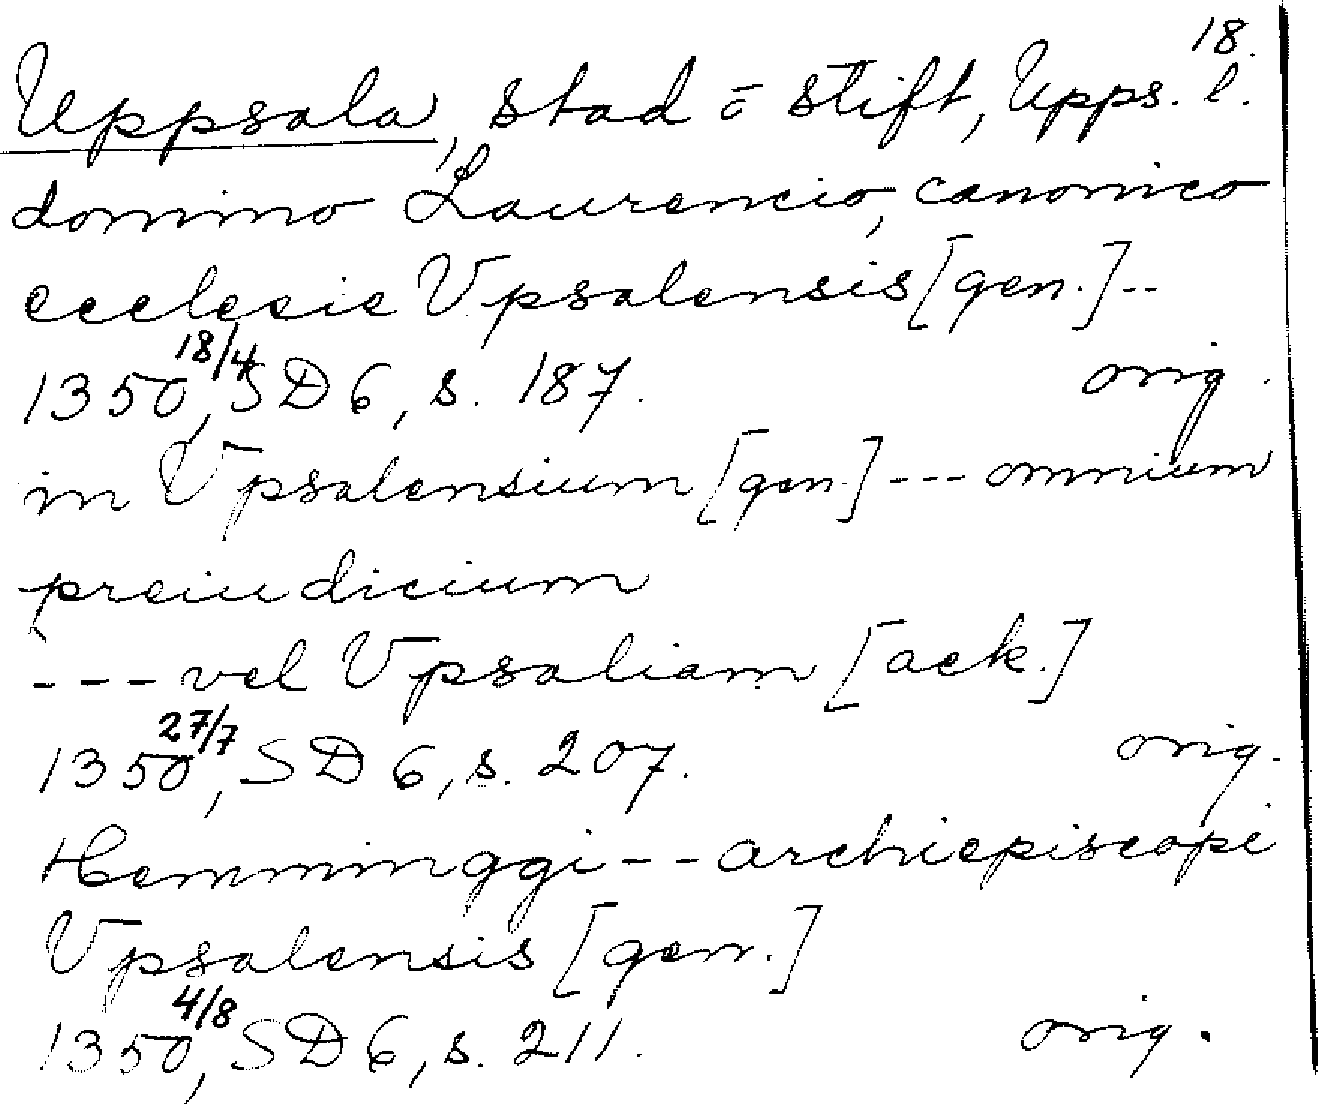 18.
Uppsala, stad o stift, Upps. l.
domino Laurencio, canonico
ecclesie Vpsalensis [gen.]--
1350 18/4, SD 6, s. 187. orig.
in Vpsalensium [gen.] --- omnium
preiudicium
--- vel Vpsaliam [ack.]
1350 27/7, SD 6, s. 207. orig.
Hemminggi -- archiepiscopi
Vpsalensis [gen.]
1350 4/8, SD 6, s. 211. orig.